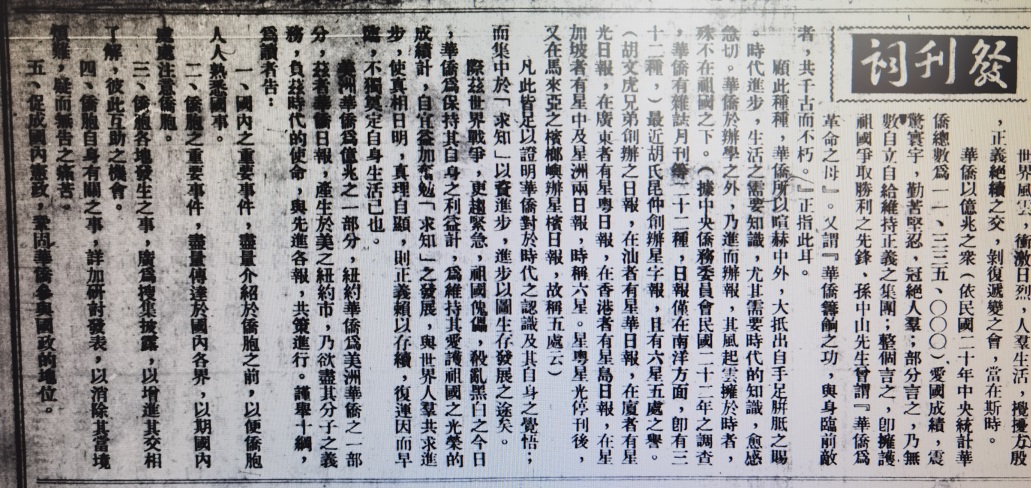 發刊詞
世界風雲,衝激日烈,人羣生活,擾攘方殷
,正義絕續之交,剝復遞變之會,當在斯時。
華僑以億兆之衆(依民國二十年中央統計華
僑總數爲一一、三三五、〇〇〇)愛國成績,震
驚寰宇,勤苦堅忍,冠絕人羣;部分言之,乃無
數自立自給維持正義之集團;整個言之,卽擁護
祖國爭取勝利之先鋒、孫中山先生曾謂『華僑爲
革命之母』。又謂『華僑籌餉之功,與身臨前敵
者,共千古而不朽。』正指此耳。
顧此種種,華僑所以喧赫中外,大抵出自手足胼胝之賜
。時代進步,生活之需要知識,尤其需要時代的知識,愈感
急切。華僑於辦學之外,乃進而辦報,其風起雲擁於時者,
殊不在祖國之下。(據中央僑務委員會民國二十二年之調查
,華僑有雜誌月刊二十二種,日報僅在南洋方面,卽有三
十二種,)最近胡氏昆仲創辦星字報,且有六星五處之譽。
(胡文虎兄弟創辦之日報,在汕者有星華日報,在廈者有星
光日報,在廣東者有星粵日報,在香港者有星島日報,在星
加坡者有星中及星洲兩日報,時稱六星。星粵星光停刊後,
又在馬來亞之檳榔嶼辦星檳日報,故稱五處云)
凡此皆足以證明華僑對於時代之認識及其自身之覺悟;
而集中於「求知」以資進步,進步以圖生存發展之途矣。
際茲世界戰爭,更趨緊急,祖國傀儡,殺亂黑白之今日
,華僑爲保持其自身之利益計,爲維持其愛護祖國之光榮的
成績計,自宜益加奮勉「求知」之發展,與世界人羣共求進
步,使眞相日明,眞理自顯,則正義賴以存續,復運因而早
臨,不獨奠定自身生活已也。
美洲華僑爲億兆之一部分,紐約華僑爲美洲華僑之一部
分,茲者華僑日報,產生於美之紐約市,乃欲盡其分子之義
務,負茲時代的使命,與先進各報,共策進行。謹舉十綱,
爲讀者告:
一、國內之重要事件,盡量介紹於僑胞之前,以便僑胞
人人熟悉國事。
二、僑胞之重要事件,盡量傳達於國內各界,以期國內
處處注意僑胞。
三、僑胞各地發生之事,廣爲搜集披露,以增進其交相
了解,彼此互助之機會。
四、僑胞自身有關之事,詳加研討發表,以消除其當境
疑而無告之痛苦。
五、促成國內憲政,鞏固華僑參與國政的地位。